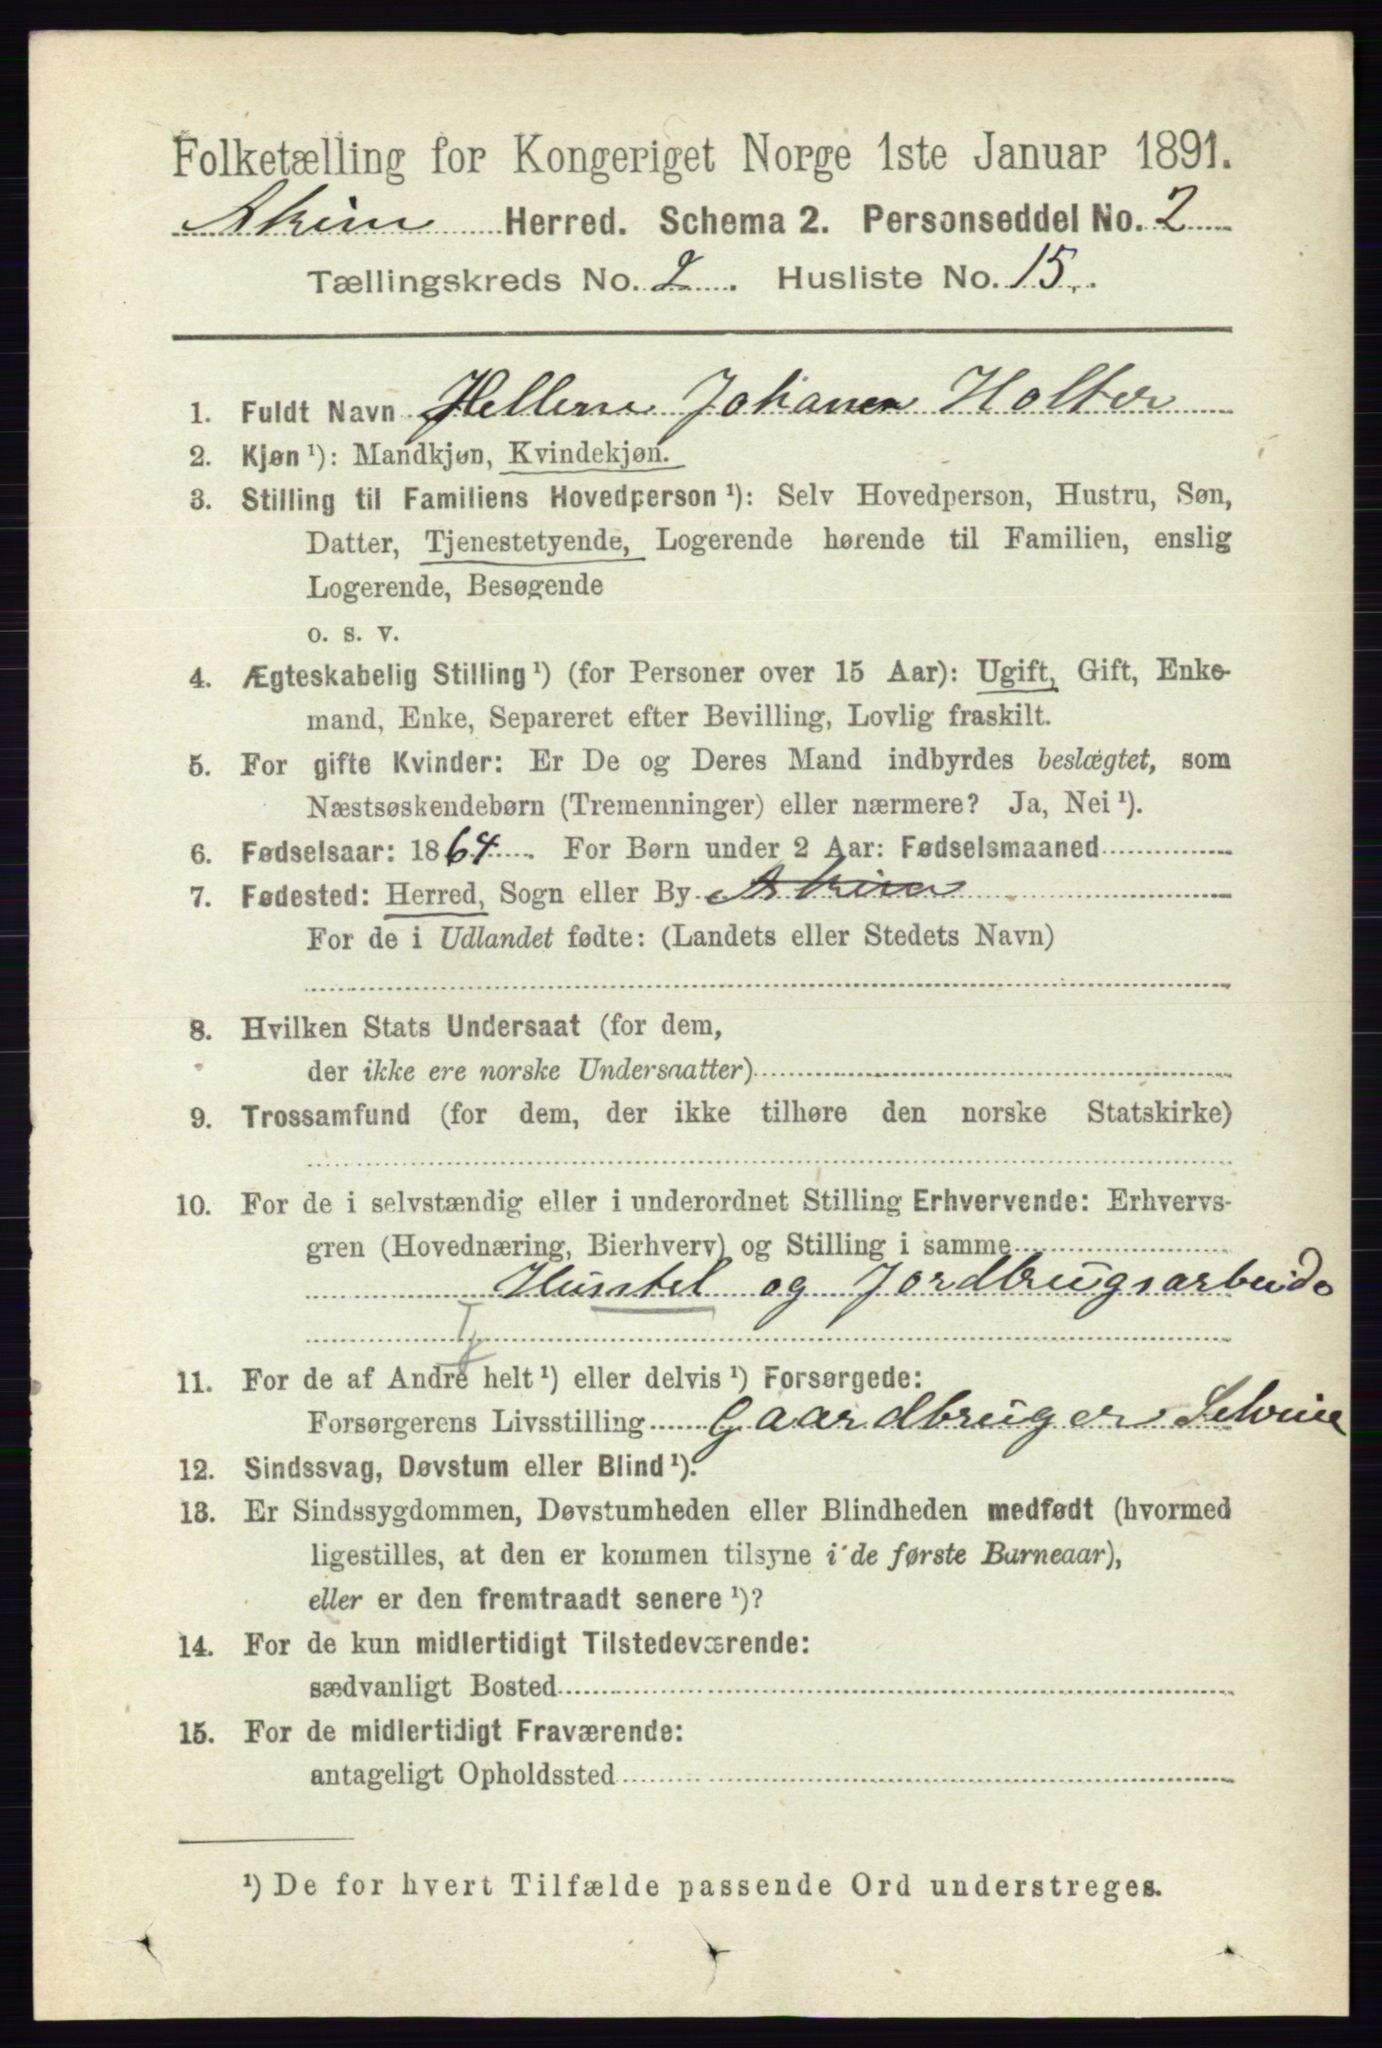 Folketælling for Kongeriget Norge 1ste Januar 1891.
Askim Herred. Schema 2. Personseddel No. 2
Tællingskreds No. 2. Husliste No. 15.
1. Fuldt Navn Hellene Johanna Holter
2. Kjøn ¹): Mandkjøn, Kvindekjøn.
3. Stilling til Familiens Hovedperson ¹): Selv Hovedperson, Hustru, Søn,
Datter, Tjenestetyende, Logerende hørende til Familien, enslig
Logerende, Besøgende
o. s. v.
4. Ægteskabelig Stilling ¹) (for Personer over 15 Aar): Ugift, Gift, Enke-
mand, Enke, Separeret efter Bevilling, Lovlig fraskilt.
5. For gifte Kvinder: Er De og Deres Mand indbyrdes beslægtet, som
Næstsøskendebørn (Tremenninger) eller nærmere? Ja, Nei ¹).
6. Fødselsaar: 1864. For Børn under 2 Aar: Fødselsmaaned
7. Fødested: Herred, Sogn eller By Askim
For de i Udlandet fødte: (Landets eller Stedets Navn)
8. Hvilken Stats Undersaat (for dem,
der ikke ere norske Undersaatter)
9. Trossamfund (for dem, der ikke tilhøre den norske Statskirke)
10. For de i selvstændig eller i underordnet Stilling Erhvervende: Erhvervs-
gren (Hovednæring, Bierhverv) og Stilling i samme
Husstel og Jordbrugsarbeide
Tj
11. For de af Andre helt ¹) eller delvis ¹) Forsørgede:
Forsørgerens Livsstilling Gaardbruger Selveie
12. Sindssvag, Døvstum eller Blind ¹).
13. Er Sindssygdommen, Døvstumheden eller Blindheden medfødt (hvormed
ligestilles, at den er kommen tilsyne i de første Barneaar),
eller er den fremtraadt senere ¹)?
14. For de kun midlertidigt Tilstedeværende:
sædvanligt Bosted
15. For de midlertidigt Fraværende:
antageligt Opholdssted
¹) De for hvert Tilfælde passende Ord understreges.